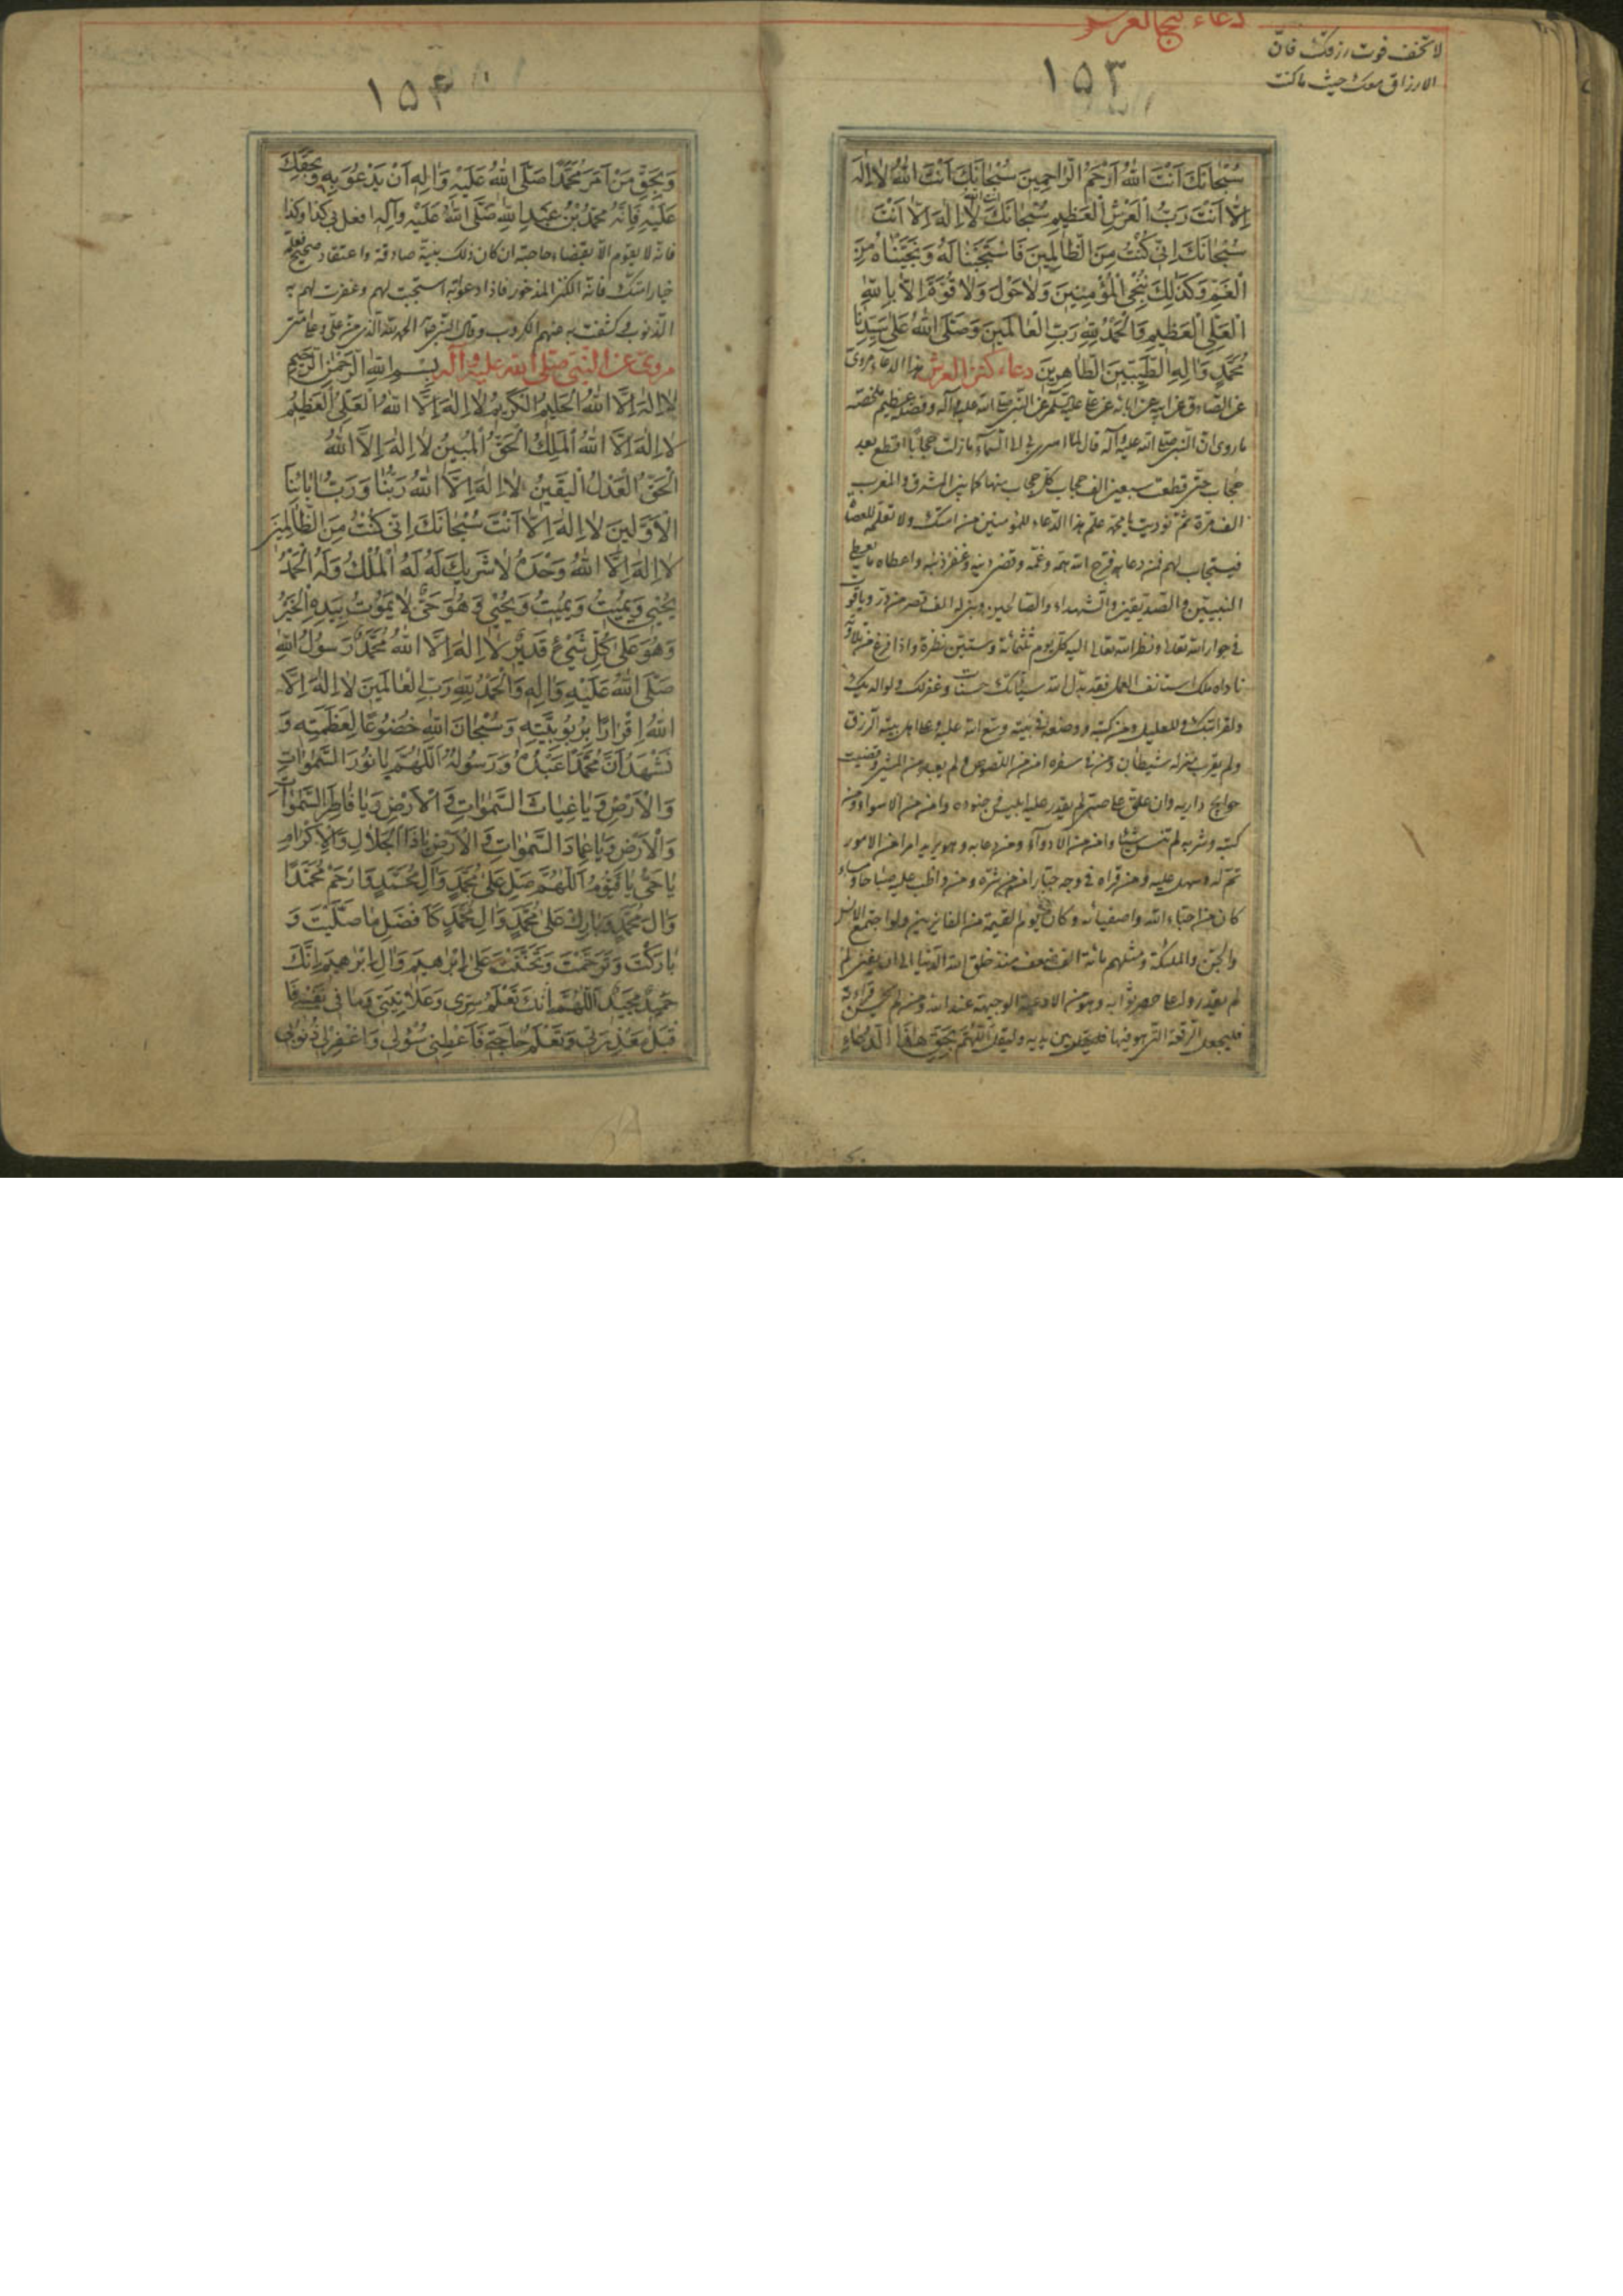 دعاء
لا تخف فوت رزقك فان
الارزاق معك حيث ما كنت
۱۵۳
سُبْحانَكَ اَنْتَ اللهُ اَرْحَمُ الرّاحِمينَ سُبْحانَكَ اَنْتَ اللهُ لا اِلٰهَ
اِلّا اَنْتَ رَبُّ الْعَرْشِ الْعَظيمِ سُبْحانَكَ لا اِلٰهَ اِلّا اَنْتَ
سُبْحانَكَ اِنّى كُنْتُ مِنَ الظّالِمينَ فَاسْتَجَبْنا لَهُ وَنَجَّيْناهُ مِنَ
الْغَمِّ وَكَذٰلِكَ نُنْجِى الْمُؤْمِنينَ وَلا حَوْلَ وَلا قُوَّةَ اِلّا بِاللهِ
الْعَلِىِّ الْعَظيمِ وَالْحَمْدُ لِلّهِ رَبِّ الْعالَمينَ وَصَلَّى اللهُ عَلىٰ سَيِّدِنا
مُحَمَّدٍ وَالِهِ الطَّيِّبينَ الطّاهِرينَ دعاء كنز العرش هذا الدعاء مروىّ
عن الصادق عن ابيه عن ابائه عن على عليه السلم عن النبى صلى الله عليه وآله وفضله عظيم ملخصه
ما روى ان النبى صلى الله عليه وآله قال لما اسرى بى الى السماء ما زلت حجابا اقطع بعد
حجاب حتى قطعت سبعين الف حجاب كل حجاب منها كما بين المشرق والمغرب
الف مرة ثم نوديت يا محمد علّم هذا الدعاء للمؤمنين من امتك ولا تعلّمه للعصاة
فيستجاب لهم فمن دعا به فرج الله همه وغمه وقضى دينه وغفر ذنبه واعطاه ما يعطى
النبيين والصديقين والشهداء والصالحين وبنى له الف قصر من در وياقوت
فى جوار الله تعالى ونظر الله تعالى اليه كل يوم ثلثمائة وستين نظرة واذا فرغ من تلاوته
ناداه ملك استانف العمل فقد بدل الله سيئاتك حسنات وغفر لك ولوالديك
ولقرابتك ومن كتبه ووضعه فى بيته وسع الله عليه وعلى اهل بيته الرزق
ولم يقرب منزله شيطان ومن سفره امن من اللصوص
حوائج داريه وان علق على صبى لم يقدر عليه ابليس وجنوده وامن من الاسواء ومن
كتبه وشربه لم ينس شيئا وامن من الادواء ومن دعا به وهو يريد امرا من الامور
تم له وسهل عليه ومن قراه فى وجه جبار امن من شره ومن واظب عليه صباحا ومساء
كان من احباء الله واصفيائه وكان يوم القيمة من الفائزين ولو اجتمع الانس
والجن والملئكة ومثلهم مائة الف ضعف منذ خلق الله الدنيا الى ان
لم يقدروا على حصر ثوابه وهو من الادعية الوجيهة عند الله ومن لم يحسن قراءته
فليجعل الرقعة التى هو فيها بين يديه وليقل اَللّٰهُمَّ بِحَقِّ هٰذَا الدُّعاءِ
۱۵۴
وَبِحَقِّ مَنْ اَمَرَ مُحَمَّدًا صَلَّى اللهُ عَلَيْهِ وَالِهِ اَنْ يَدْعُوَ بِهِ وَبِحَقِّكَ
عَلَيْهِ فَاِنَّهُ مُحَمَّدُ بْنُ عَبْدِ اللهِ صَلَّى اللهُ عَلَيْهِ وَآلِهِ افعل بى كذا وكذا
فانه لا يقوم الا بقضاء حاجته ان كان ذلك بنية صادقة واعتقاد صحيح فعلّمه
خيار امتك فانه الكنز المذخور فاذا دعوا به استجبت لهم وغفرت لهم به
الذنوب وكشفت به عنهم الكروب وقال النبى الحمد لله الذى من علىّ وعلى امتى
مروى عن النبى صلى الله عليه وآله بِسْمِ اللهِ الرَّحْمٰنِ الرَّحيمِ
لا اِلٰهَ اِلَّا اللهُ الْحَليمُ الْكَريمُ لا اِلٰهَ اِلَّا اللهُ الْعَلِىُّ الْعَظيمُ
لا اِلٰهَ اِلَّا اللهُ الْمَلِكُ الْحَقُّ الْمُبينُ لا اِلٰهَ اِلَّا اللهُ
الْحَقُّ الْعَدْلُ الْيَقينُ لا اِلٰهَ اِلَّا اللهُ رَبُّنا وَرَبُّ ابائِنَا
الْاَوَّلينَ لا اِلٰهَ اِلّا اَنْتَ سُبْحانَكَ اِنّى كُنْتُ مِنَ الظّالِمينَ
لا اِلٰهَ اِلَّا اللهُ وَحْدَهُ لا شَريكَ لَهُ لَهُ الْمُلْكُ وَلَهُ الْحَمْدُ
يُحْيى وَيُميتُ وَيُميتُ وَيُحْيى وَهُوَ حَىٌّ لا يَمُوتُ بِيَدِهِ الْخَيْرُ
وَهُوَ عَلىٰ كُلِّ شَىْءٍ قَديرٌ لا اِلٰهَ اِلَّا اللهُ مُحَمَّدٌ رَسُولُ اللهِ
صَلَّى اللهُ عَلَيْهِ وَالِهِ وَالْحَمْدُ لِلّهِ رَبِّ الْعالَمينَ لا اِلٰهَ اِلَّا
اللهُ اِقْرارًا بِرُبُوبِيَّتِهِ وَسُبْحانَ اللهِ خُضُوعًا لِعَظَمَتِهِ وَ
نَشْهَدُ اَنَّ مُحَمَّدًا عَبْدُهُ وَرَسُولُهُ اَللّٰهُمَّ يا نُورَ السَّمٰواتِ
وَالْاَرْضِ وَيا غِياثَ السَّمٰواتِ وَالْاَرْضِ وَيا فاطِرَ السَّمٰواتِ
وَالْاَرْضِ وَيا عِمادَ السَّمٰواتِ وَالْاَرْضِ يا ذَا الْجَلالِ وَالْاِكْرامِ
يا حَىُّ يا قَيُّومُ اَللّٰهُمَّ صَلِّ عَلىٰ مُحَمَّدٍ وَالِ مُحَمَّدٍ وَارْحَمْ مُحَمَّدًا
وَالَ مُحَمَّدٍ وَبارِكْ عَلىٰ مُحَمَّدٍ وَالِ مُحَمَّدٍ كَاَفْضَلِ ما صَلَّيْتَ وَ
بارَكْتَ وَتَرَحَّمْتَ وَتَحَنَّنْتَ عَلىٰ اِبْرٰهيمَ وَالِ اِبْرٰهيمَ اِنَّكَ
حَميدٌ مَجيدٌ اَللّٰهُمَّ اِنَّكَ تَعْلَمُ سِرّى وَعَلانِيَتى وَما فى نَفْسى فَا
قْبَلْ مَعْذِرَتى وَتَعْلَمُ حاجَتى فَاَعْطِنى سُؤْلى وَاغْفِرْ لى ذُنُوبى